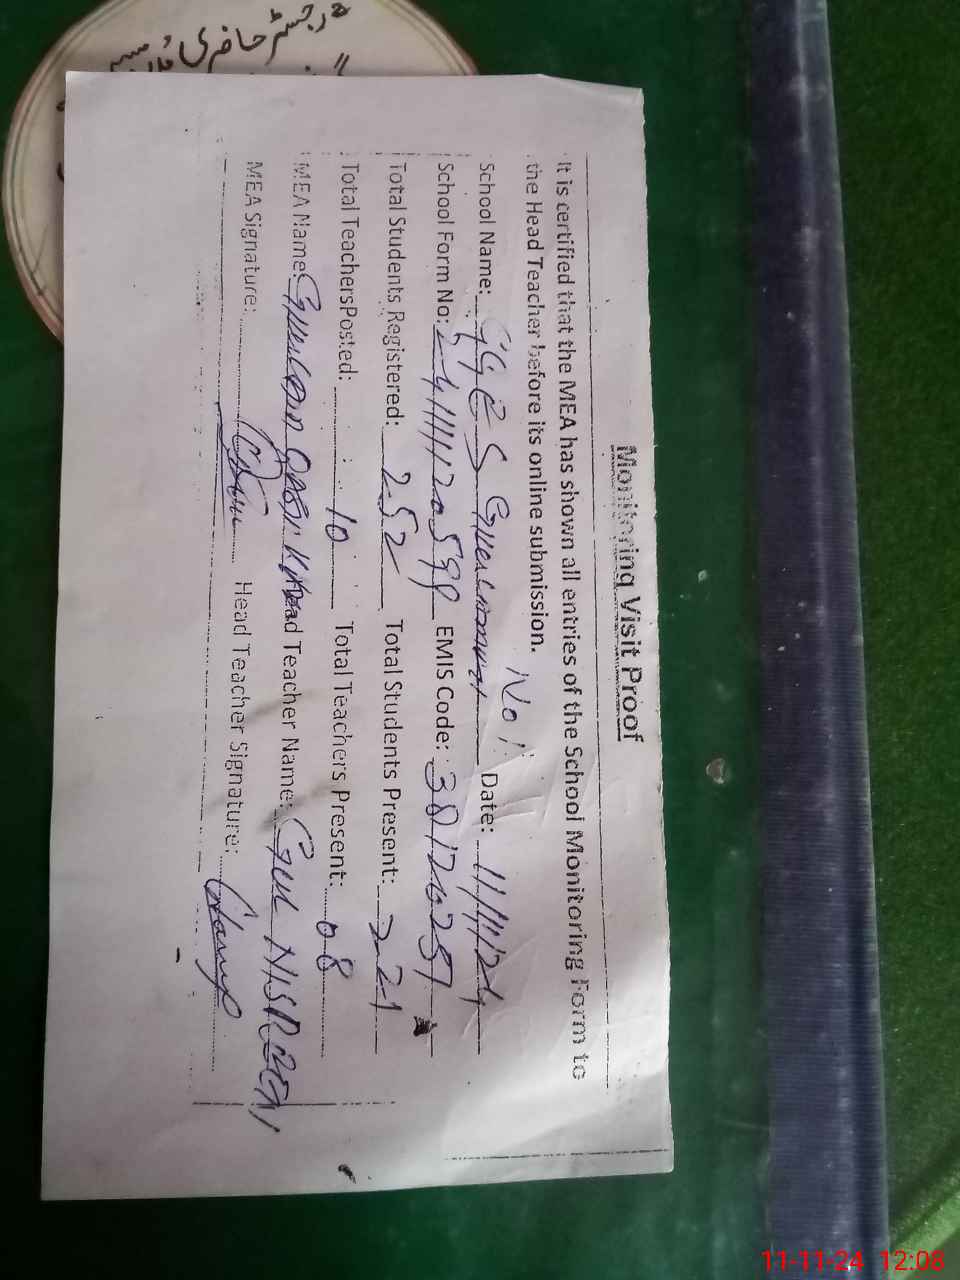 رجسٹر حاضری
Monitoring Visit Proof
It is certified that the MEA has shown all entries of the School Monitoring Form to
the Head Teacher before its online submission.
No 1
School Name: GGES Date: 11/11/24
School Form No: EMIS Code: 38120257
Total Students Registered: 252 Total Students Present: 221
Total Teachers Posted: 10 Total Teachers Present: 08
MEA Name: Head Teacher Name: Gul
MEA Signature: Head Teacher Signature:
11-11-24 12:08